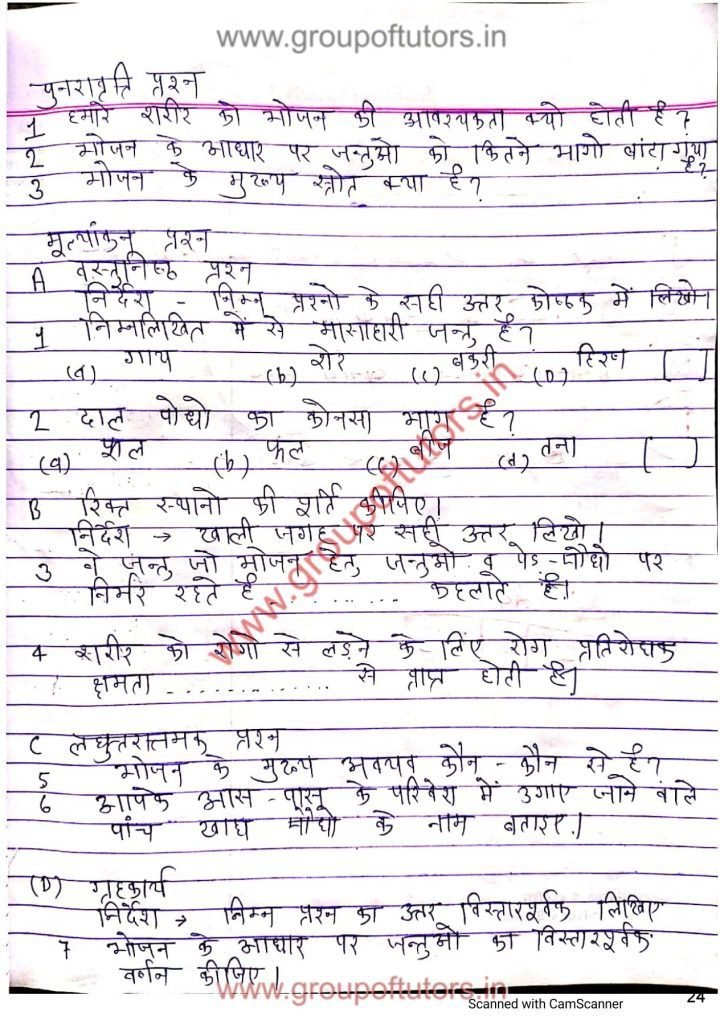 www.groupoftutors.in
पुनरावृत्ति प्रश्न
1 हमारे शरीर को भोजन की आवश्यकता क्यो होती है?
2 भोजन के आधार पर जन्तुओ को कितने भागो बांटा गया है?
3 भोजन के मुख्य स्त्रोत क्या है?
मूल्यांकन प्रश्न
A वस्तुनिष्ठ प्रश्न
निर्देश - निम्न प्रश्नो के सही उत्तर कोष्ठक में लिखो।
1 निम्नलिखित में से मासाहारी जन्तु है?
(a) गाय (b) शेर (c) बकरी (D) हिरण [ ]
2 दाल पोधो का कोनसा भाग है?
(a) फल (c) बीज (d) तना [ ]
B रिक्त स्थानो की कीजिए।
निर्देश → खाली जगह पर सही उत्तर लिखो।
3 वे जन्तु जो भोजन हेतु जन्तुओ व पेड़-पौधो पर
निर्भर रहते है .............. कहलाते है।
4 शरीर को रोगो से लड़ने के लिए रोग प्रतिरोधक
क्षमता ................ से प्राप्त होती है।
C लघुत्तरात्मक प्रश्न
5 भोजन के मुख्य अवयव कौन - कौन से है?
6 आपके आस - पास के परिवेश में उगाए जाने वाले
पांच खाद्य पौधो के नाम बताइए।
(D) ग्रहकार्य
निर्देश → निम्न प्रश्न का उत्तर विस्तारपूर्वक लिखिए
7 भोजन के आधार पर जन्तुओ का विस्तारपूर्वक
वर्णन कीजिए।
www.groupoftutors.in
www.groupoftutors.in
Scanned with CamScanner
24